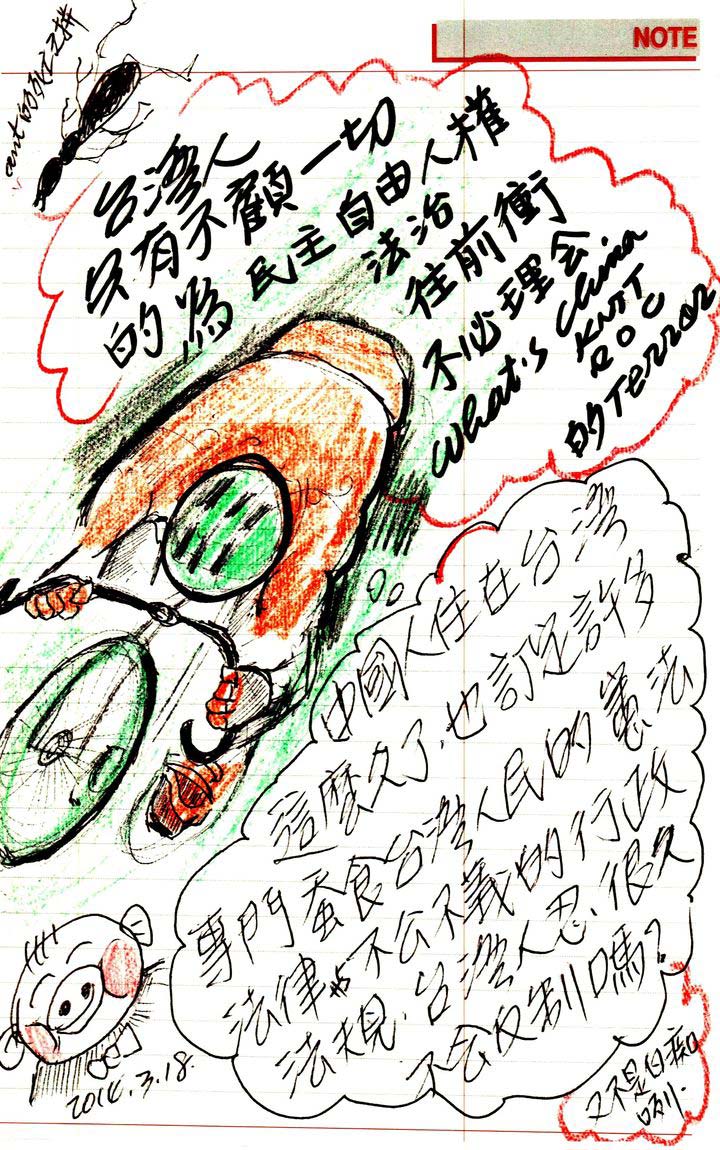 NOTE
ant的亂之拼
台灣人
只有不顧一切
的為民主自由人權
法治
往前衝
不必理會
What's China
KMT
ROC
的Terror
中國人住在台灣
這麼久了,也訂定許多
專門蚕食台灣人民的憲法
法律 不公不義的行政
法規,台灣人忍,很久
不會反制嗎?
又不是白痴
2014.3.18.